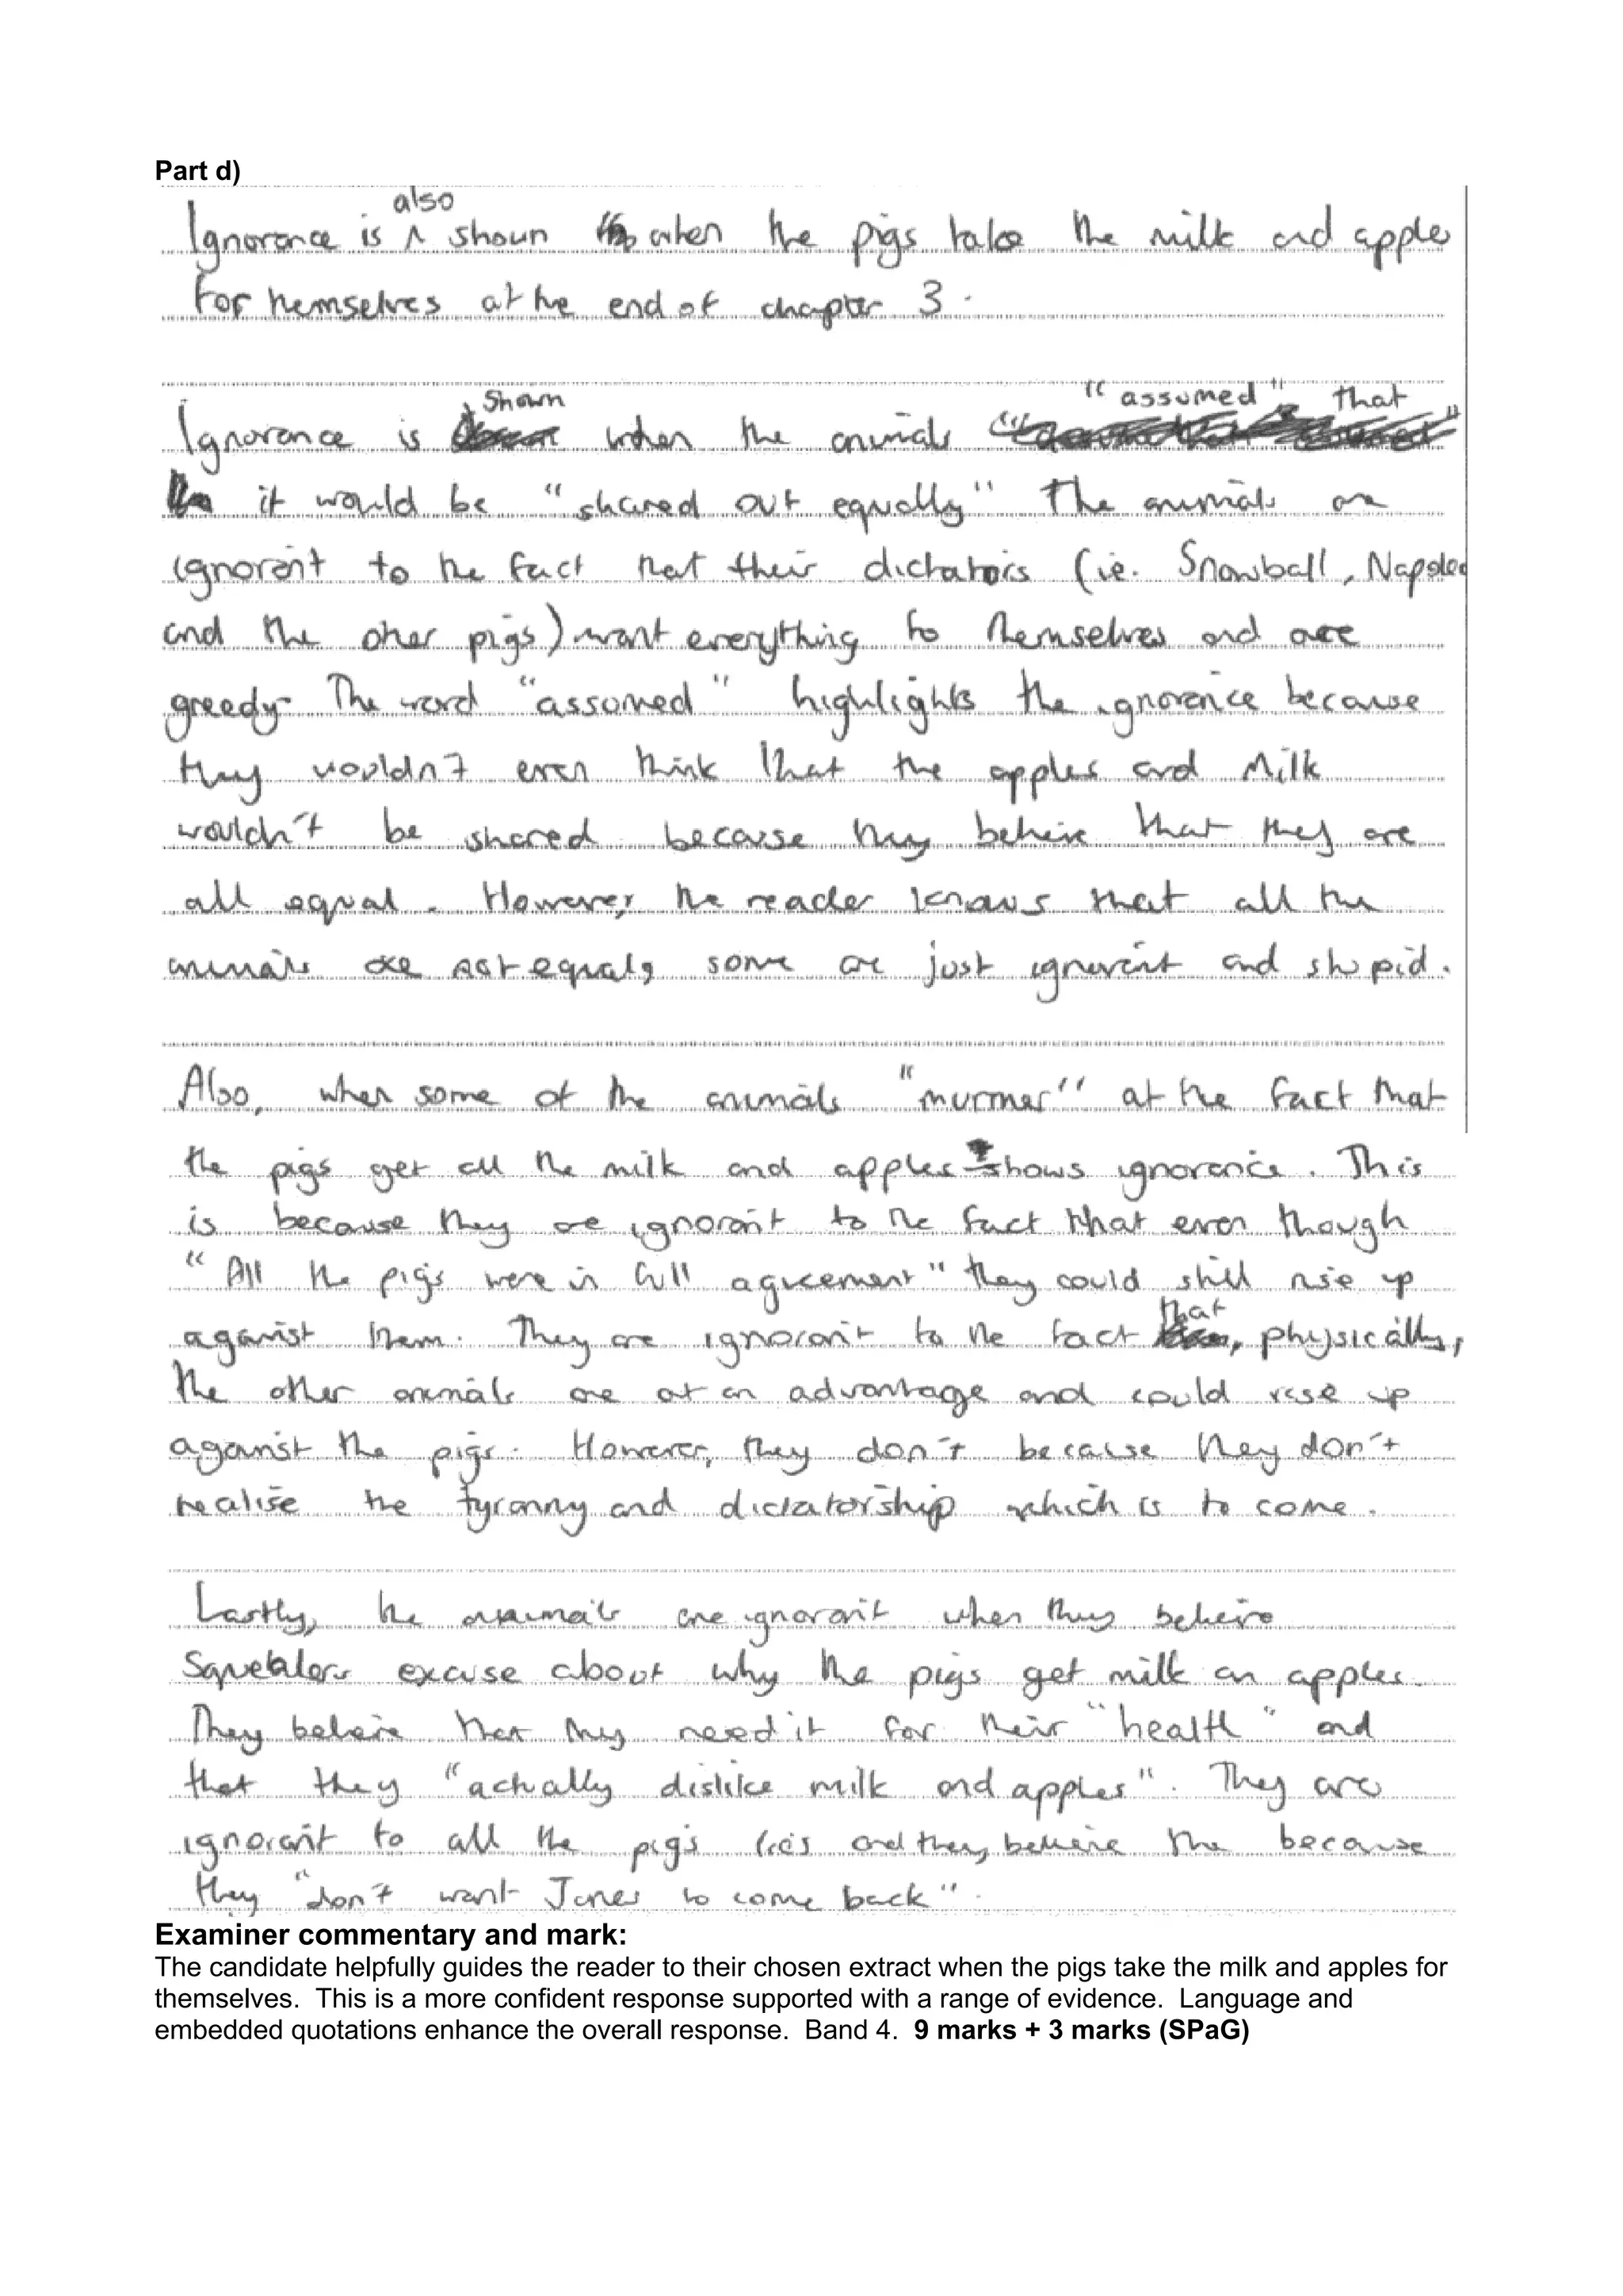 Part d)
Ignorance is also shown when the pigs take the milk and apples
for themselves at the end of chapter 3.
Ignorance is shown when the animals "assumed" that
it would be "shared out equally" The animals are
ignorant to the fact that their dictators (ie. Snowball, Napoleo
and the other pigs) want everything to themselves and are
greedy. The word "assumed" highlights the ignorance because
they wouldn't even think that the apples and milk
wouldn't be shared because they believe that they are
all equal. However, the reader knows that all the
animals are not equal, some are just ignorant and stupid.
Also, when some of the animals "murmer" at the fact that
the pigs get all the milk and apples shows ignorance. This
is because they are ignorant to the fact that even though
"All the pigs were in full agreement" they could still rise up
against them. They are ignorant to the fact that, physically,
the other animals are at an advantage and could rise up
against the pigs. However, they don't because they don't
realise the tyranny and dictatorship which is to come.
Lastly, the animals are ignorant when they believe
Squealers excuse about why the pigs get milk an apples.
They believe that they need it for their "health" and
that they "actually dislike milk and apples". They are
ignorant to all the pigs lies and they believe the because
they "don't want Jones to come back".
Examiner commentary and mark:
The candidate helpfully guides the reader to their chosen extract when the pigs take the milk and apples for
themselves. This is a more confident response supported with a range of evidence. Language and
embedded quotations enhance the overall response. Band 4. 9 marks + 3 marks (SPaG)